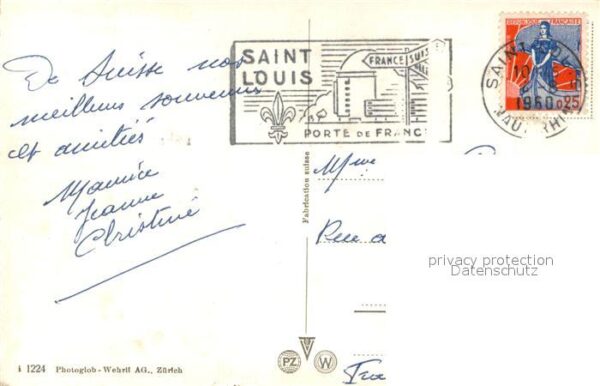 De Suisse nos
meilleurs souvenirs
et amitiés
Maurice
Jeanne
Christine
SAINT
LOUIS
FRANCE SUISSE
PORTE DE FRANC
REPUBLIQUE FRANÇAISE
SAINT
10
1960
0.25
HAUT RHIN
Fabrication suisse
Mme
Rue
privacy protection
Datenschutz
PZ W
i 1224 Photoglob-Wehrli AG., Zürich